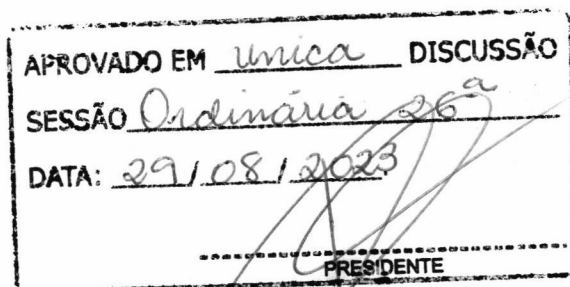 APROVADO EM unica DISCUSSÃO
SESSÃO Ordinária 26ª
DATA: 29/08/2023
PRESIDENTE